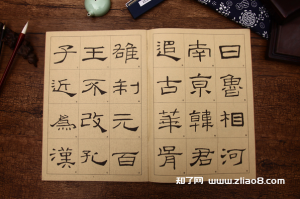 日魯相河
南京韓君
追古華胥
雄制元百
王不改孔
子近為漢
知了网 www.zliao8.com